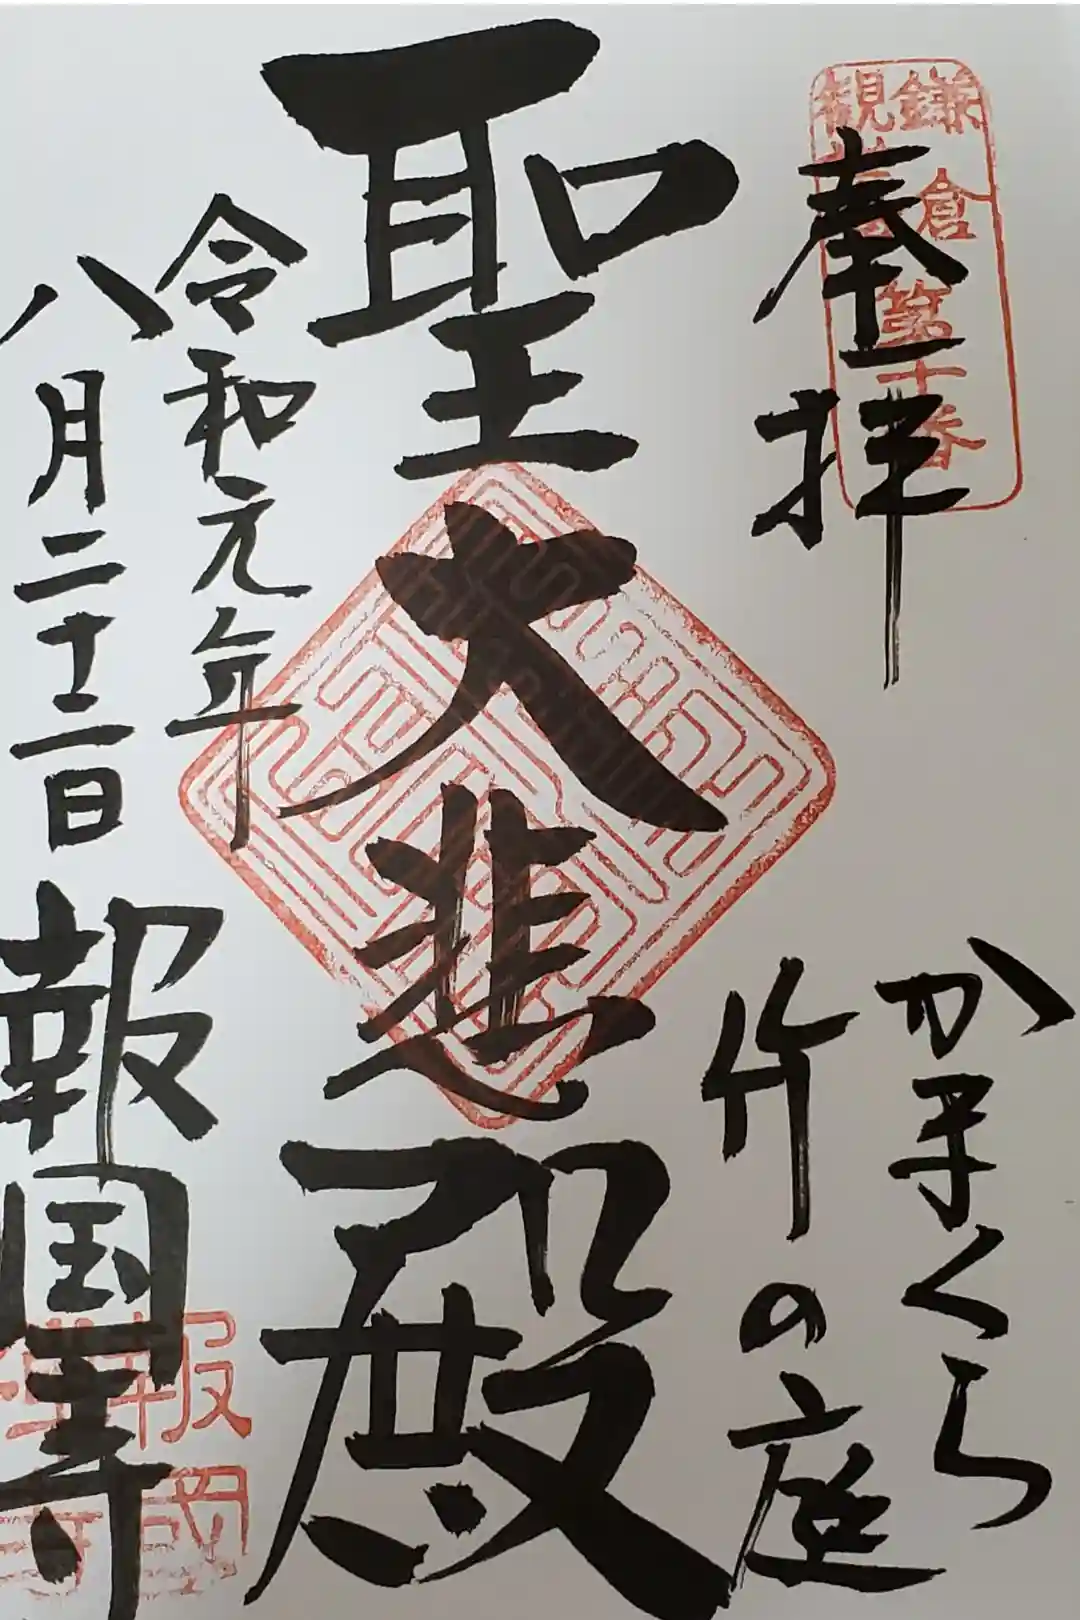 鎌倉
観
第十番
奉拝
かまくら
竹の庭
聖大悲殿
令和元年
八月二十二日
報国寺
報國